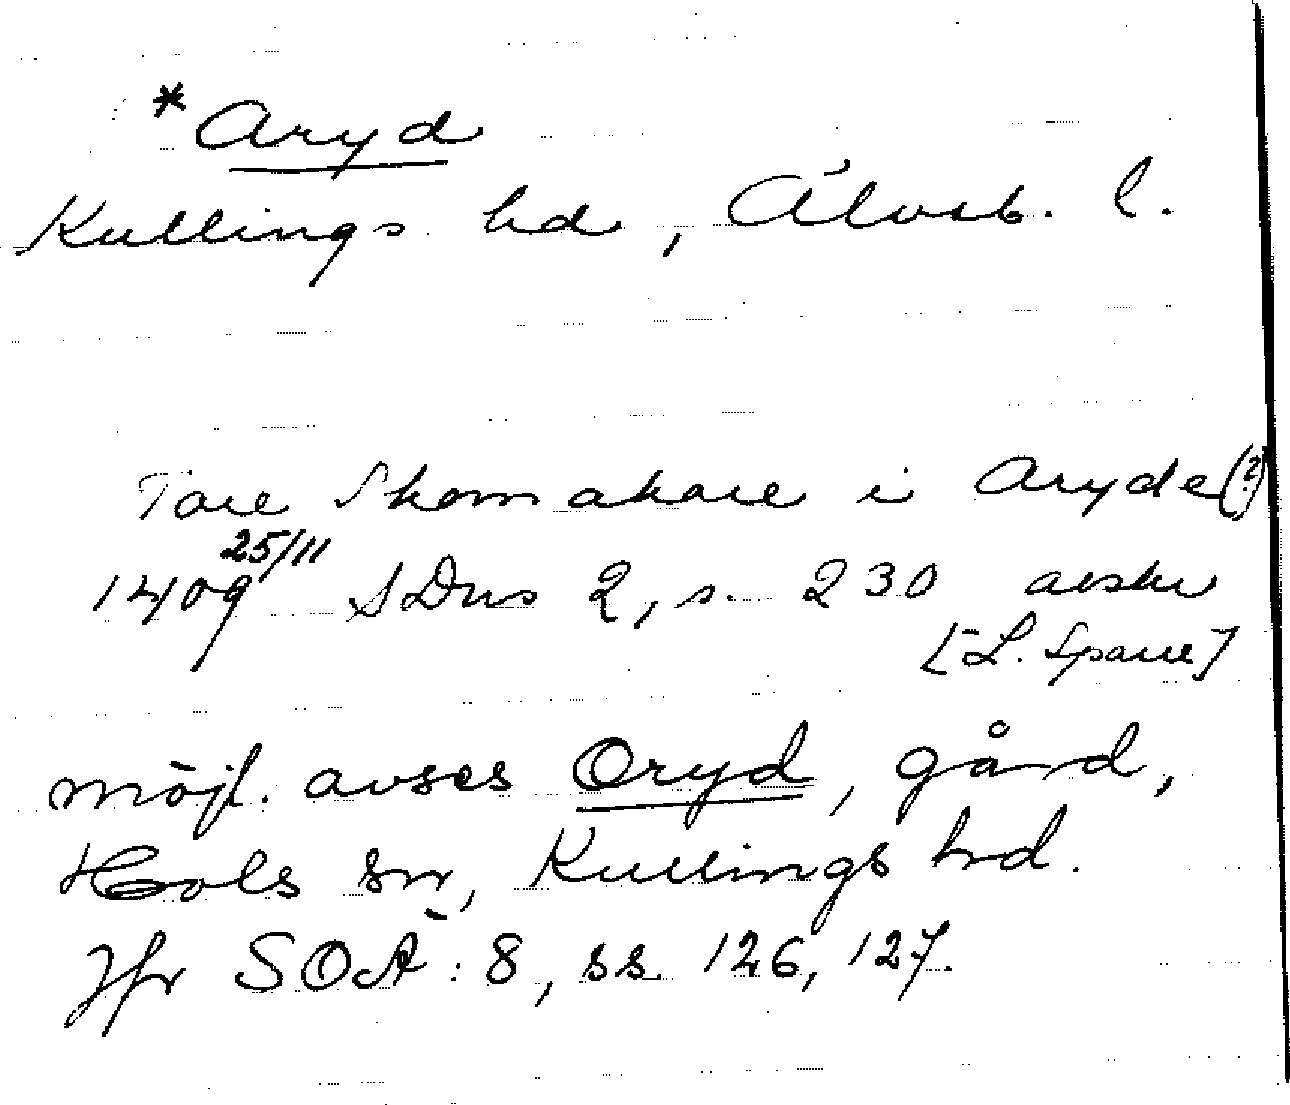 *Aryd
Kullings hd, Älvsb. l.
Tore Skomakare i Aryde(?)
25/11
1409 SDns 2, s. 230 avskr
[L. Sparre]
möjl. avses Oryd, gård,
Hols sn, Kullings hd.
Jfr SOÄ: 8, ss. 126, 127.